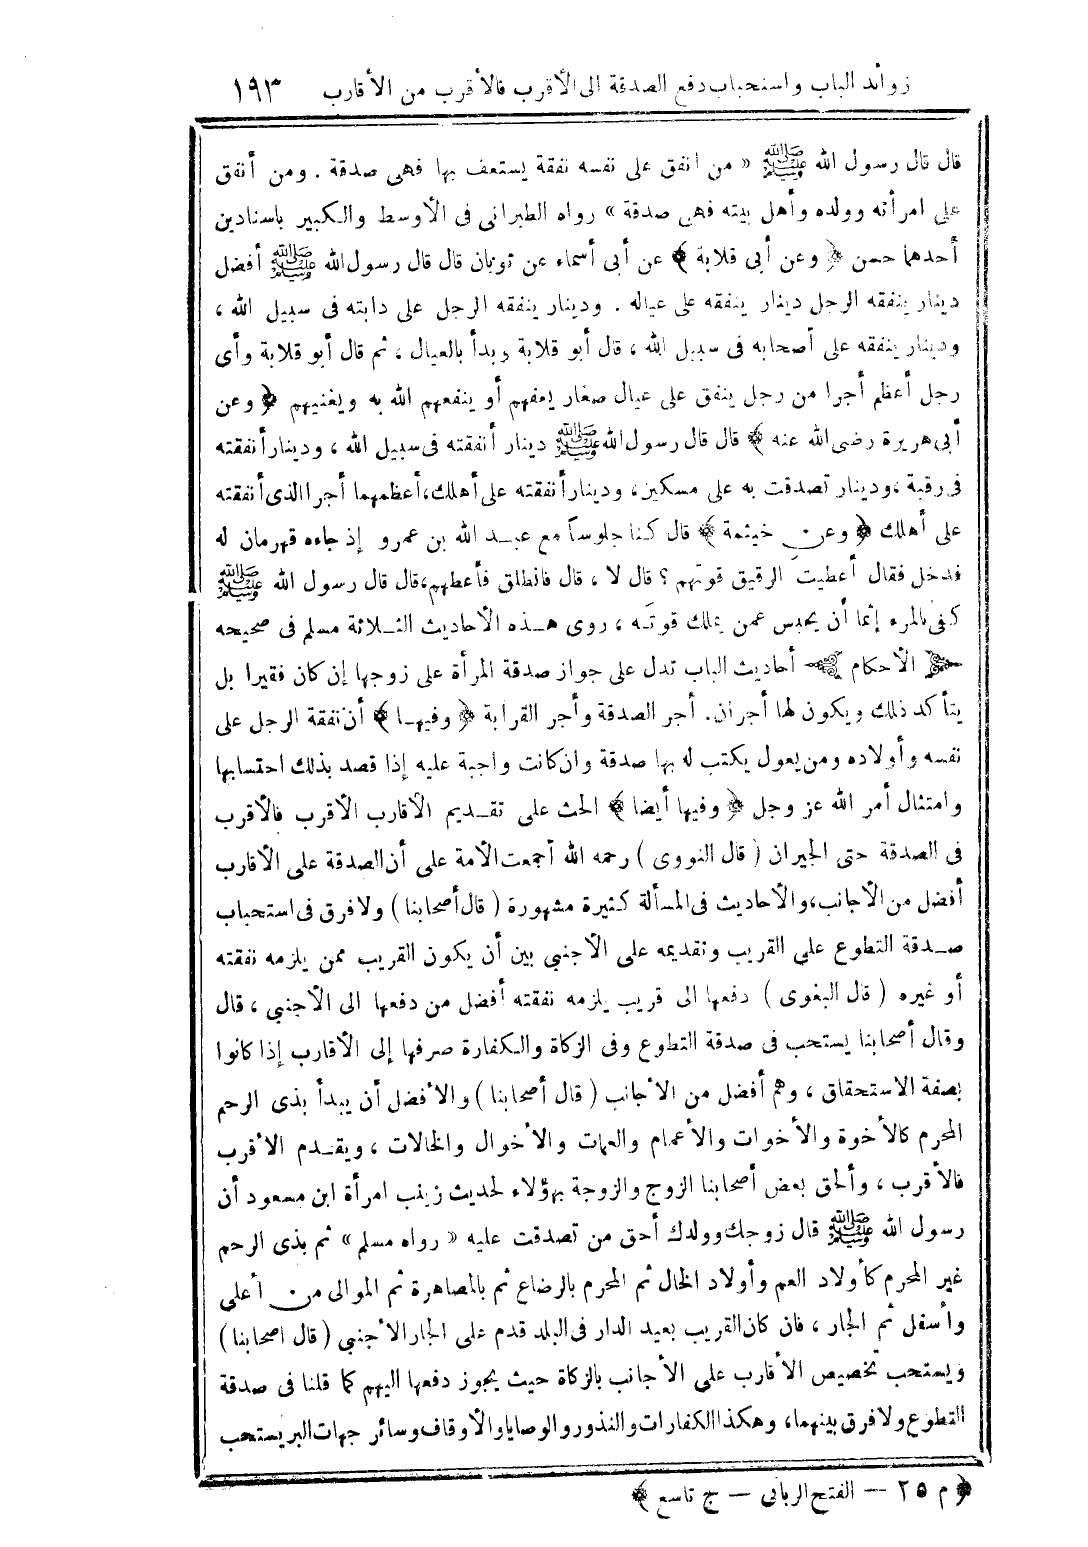 زوائد الباب واستحباب دفع الصدقة الى الأقرب فالأقرب من الأقارب ١٩٣
قال قال رسول الله ﷺ « من انفق على نفسه نفقة يستعف بها فهى صدقة . ومن أنفق
على امرأته وولده وأهل بيته فهى صدقة » رواه الطبرانى فى الأوسط والكبير باسنادين
أحدهما حسن ﴿ وعن أبى قلابة ﴾ عن أبى أسماء عن ثوبان قال قال رسول الله ﷺ أفضل
دينار ينفقه الرجل دينار ينفقه على عياله . ودينار ينفقه الرجل على دابته فى سبيل الله ،
ودينار ينفقه على أصحابه فى سبيل الله ، قال أبو قلابة وبدأ بالعيال ، ثم قال أبو قلابة وأى
رجل أعظم أجرا من رجل ينفق على عيال صغار يعفهم أو ينفعهم الله به ويغنيهم ﴿ وعن
أبى هريرة رضى الله عنه ﴾ قال قال رسول الله ﷺ دينار أنفقته فى سبيل الله ، ودينار أنفقته
فى رقبة ، ودينار تصدقت به على مسكين ، ودينار أنفقته على أهلك ، أعظمهما أجرا الذى أنفقته
على أهلك ﴿ وعن خيثمة ﴾ قال كنا جلوساً مع عبد الله بن عمرو إذ جاءه قهرمان له
فدخل فقال أعطيت الرقيق قوتهم ؟ قال لا ، قال فانطلق فأعطهم، قال قال رسول الله ﷺ
كفى بالمرء إثما أن يحبس عمن يملك قوته ، روى هذه الأحاديث الثلاثة مسلم فى صحيحه
الأحكام أحاديث الباب تدل على جواز صدقة المرأة على زوجها إن كان فقيرا بل
يتأكد ذلك ويكون لها أجران. أجر الصدقة وأجر القرابة ﴿ وفيها ﴾ أن نفقة الرجل على
نفسه وأولاده ومن يعول يكتب له بها صدقة وان كانت واجبة عليه إذا قصد بذلك احتسابها
وامتثال أمر الله عز وجل ﴿ وفيها أيضا ﴾ الحث على تقديم الأقارب الأقرب فالأقرب
فى الصدقة حتى الجيران ( قال النووى ) رحمه الله أجمعت الأمة على أن الصدقة على الأقارب
أفضل من الأجانب، والأحاديث فى المسألة كثيرة مشهورة ( قال أصحابنا ) ولا فرق فى استحباب
صدقة التطوع على القريب وتقديمه على الأجنبي بين أن يكون القريب ممن يلزمه نفقته
أو غيره ( قال البغوى ) دفعها الى قريب يلزمه نفقته أفضل من دفعها الى الأجنبي ، قال
وقال أصحابنا يستحب فى صدقة التطوع وفى الزكاة والكفارة صرفها إلى الأقارب إذا كانوا
بصفة الاستحقاق ، وهم أفضل من الأجانب ( قال أصحابنا ) والأفضل أن يبدأ بذى الرحم
المحرم كالأخوة والأخوات والأعمام والعمات والأخوال والخالات ، ويقدم الأقرب
فالأقرب ، وألحق بعض أصحابنا الزوج والزوجة بهؤلاء لحديث زينب امرأة ابن مسعود أن
رسول الله ﷺ قال زوجك وولدك أحق من تصدقت عليه « رواه مسلم » ثم بذى الرحم
غير المحرم كأولاد العم وأولاد الخال ثم المحرم بالرضاع ثم بالمصاهرة ثم الموالى من أعلى
وأسفل ثم الجار ، فان كان القريب بعيد الدار فى البلد قدم على الجار الأجنبي ( قال أصحابنا )
ويستحب تخصيص الأقارب على الأجانب بالزكاة حيث يجوز دفعها اليهم كما قلنا فى صدقة
التطوع ولا فرق بينهما، وهكذا الكفارات والنذور والوصايا والأوقاف وسائر جهات البر يستحب
﴿ م ٢٥ — الفتح الربانى — ج تاسع ﴾